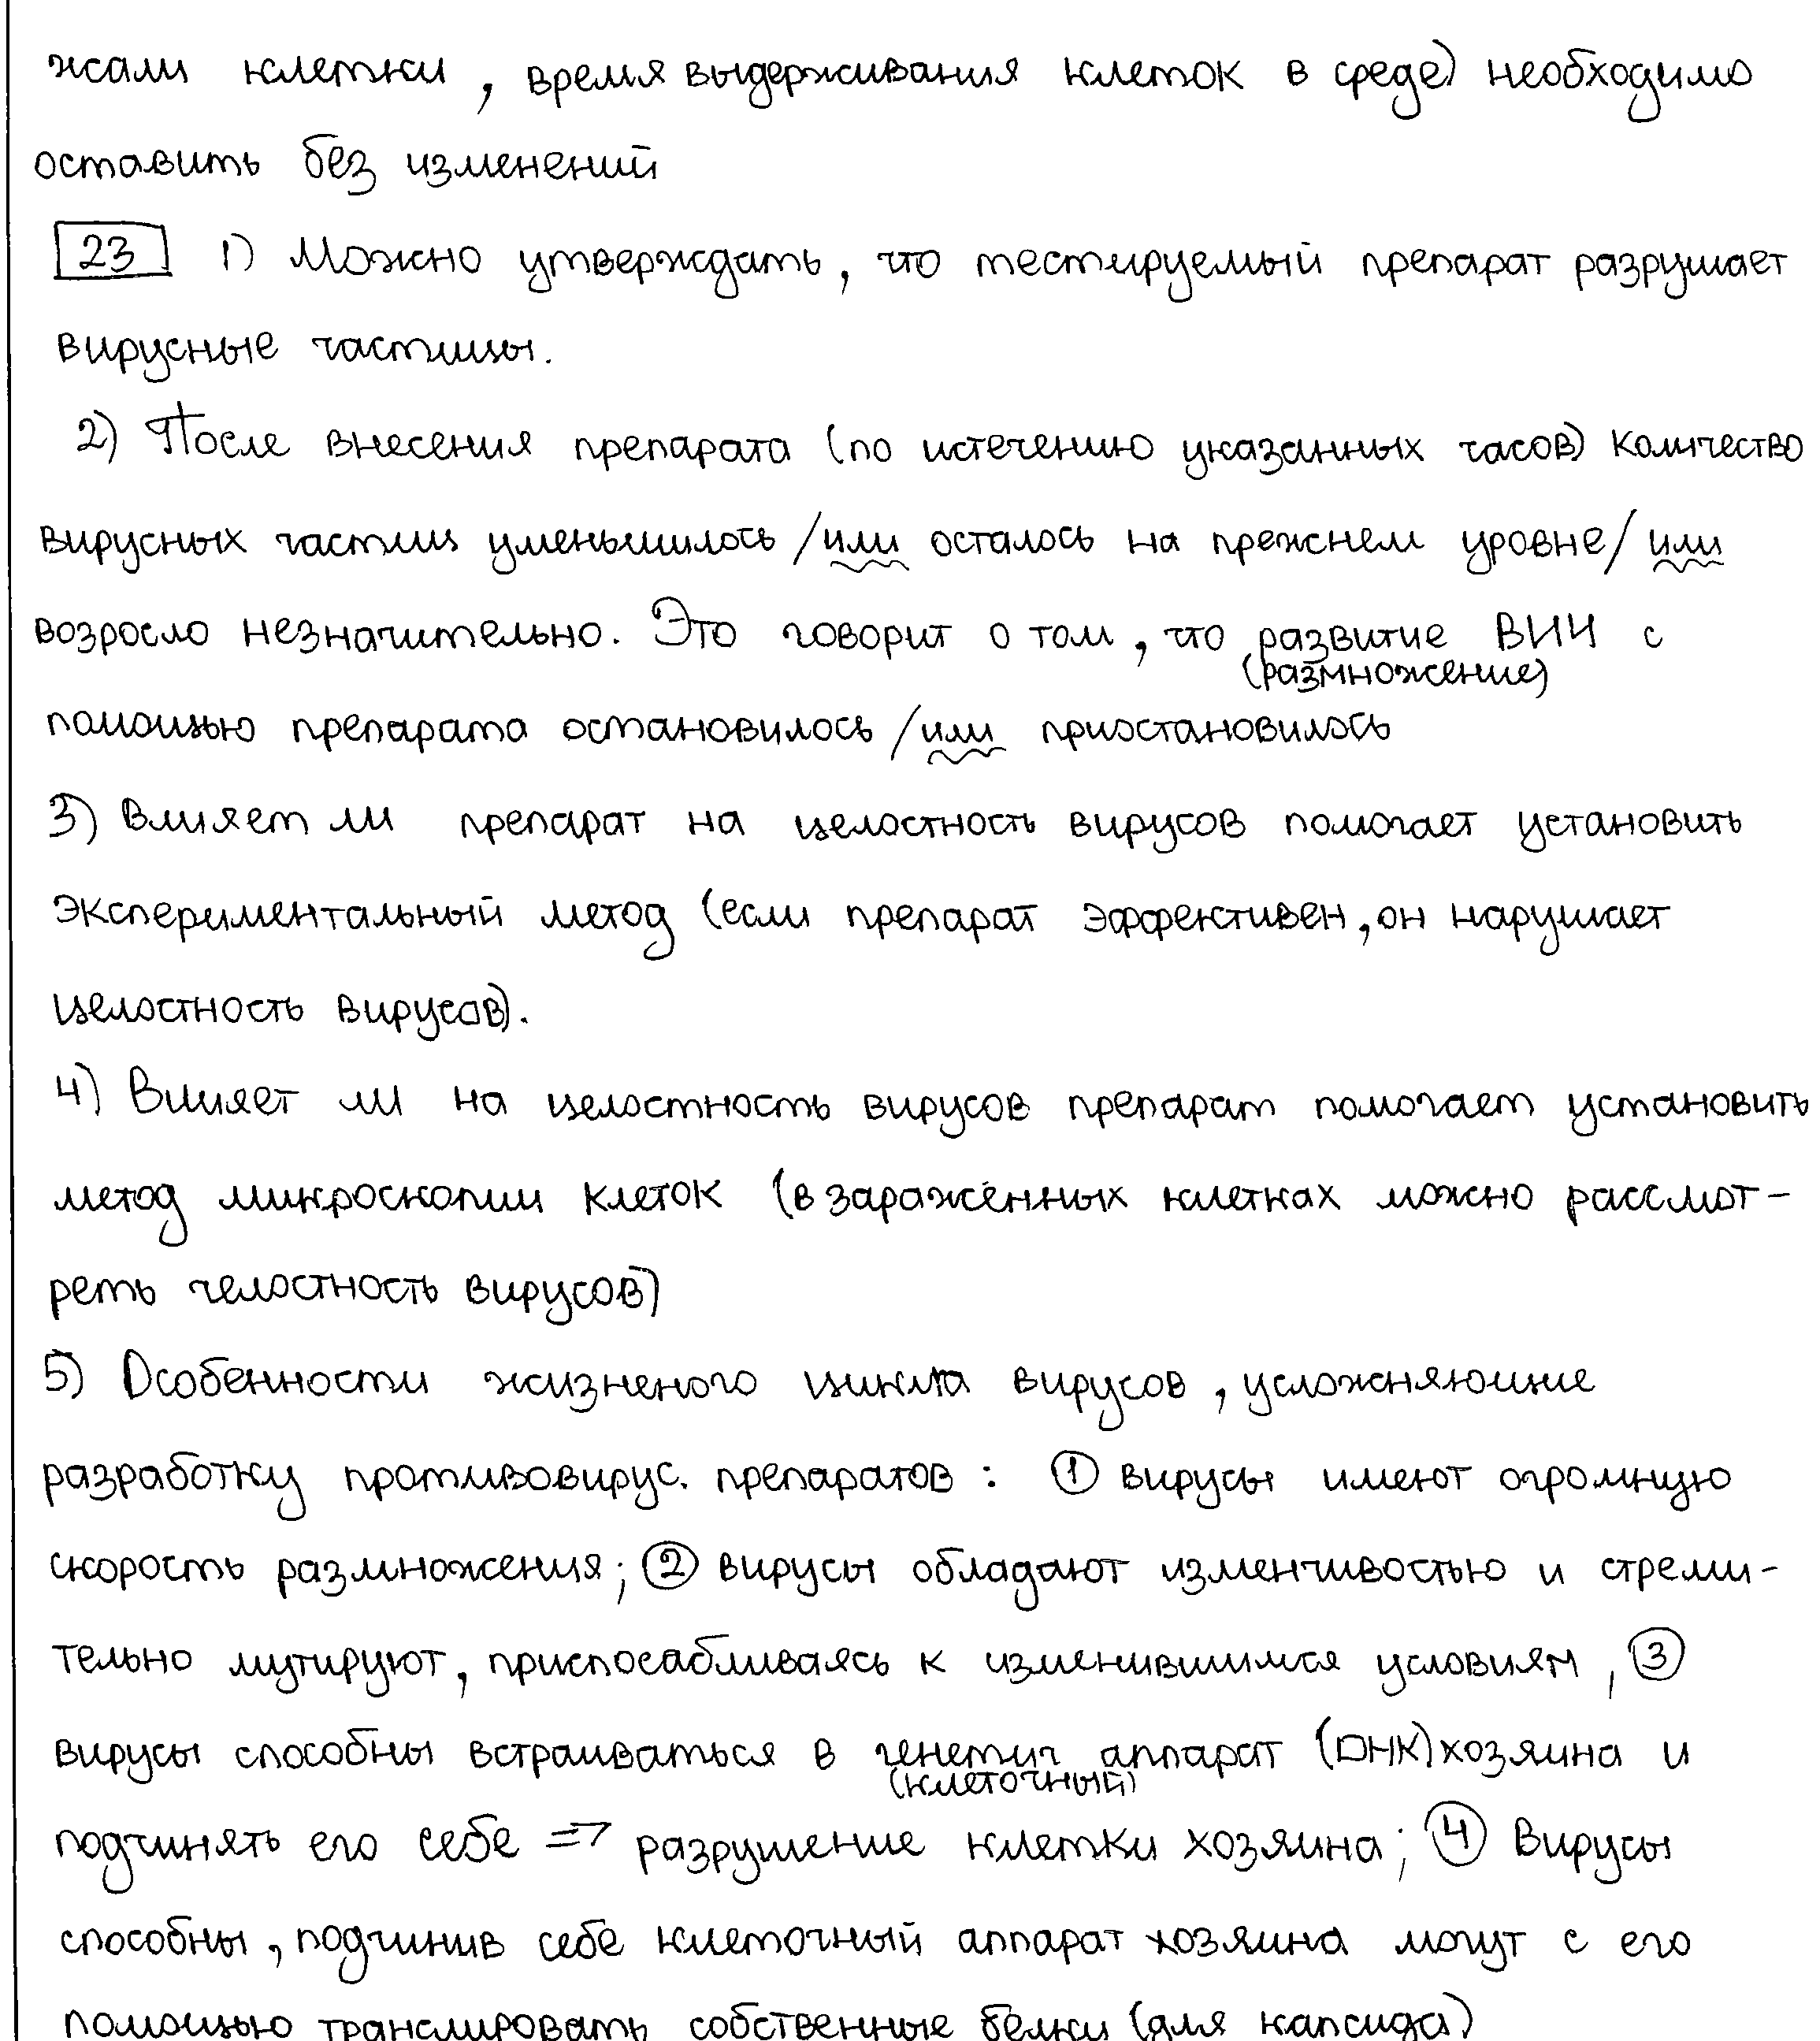 жали клетки, время выдерживания клеток в среде) необходимо
оставить без изменений
23 1) Можно утверждать, что тестируемый препарат разрушает
вирусные частицы.
2) После внесения препарата (по истечению указанных часов) количество
вирусных частиц уменьшилось /или осталось на прежнем уровне/ или
возросло незначительно. Это говорит о том, что развитие ВИЧ с
(размножение)
помощью препарата остановилось /или приостановилось
3) Влияет ли препарат на целостность вирусов помогает установить
экспериментальный метод (если препарат эффективен, он нарушает
целостность вирусов).
4) Влияет ли на целостность вирусов препарат помогает установить
метод микроскопии клеток (в заражённых клетках можно рассмот-
реть челостность вирусов)
5) Особенности жизненого цикла вирусов, усложняющие
разработку противовирус. препаратов: ① вирусы имеют огромную
скорость размножения; ② вирусы обладают изменчивостью и стреми-
тельно мутируют, приспосабливаясь к изменившимся условиям, ③
вирусы способны встраиваться в генетич аппарат (ДНК) хозяина и
(клеточный)
подчинять его себе => разрушение клетки хозяина; ④ Вирусы
способны, подчинив себе клеточный аппарат хозяина могут с его
помощью транслировать собственные белки (для капсида)